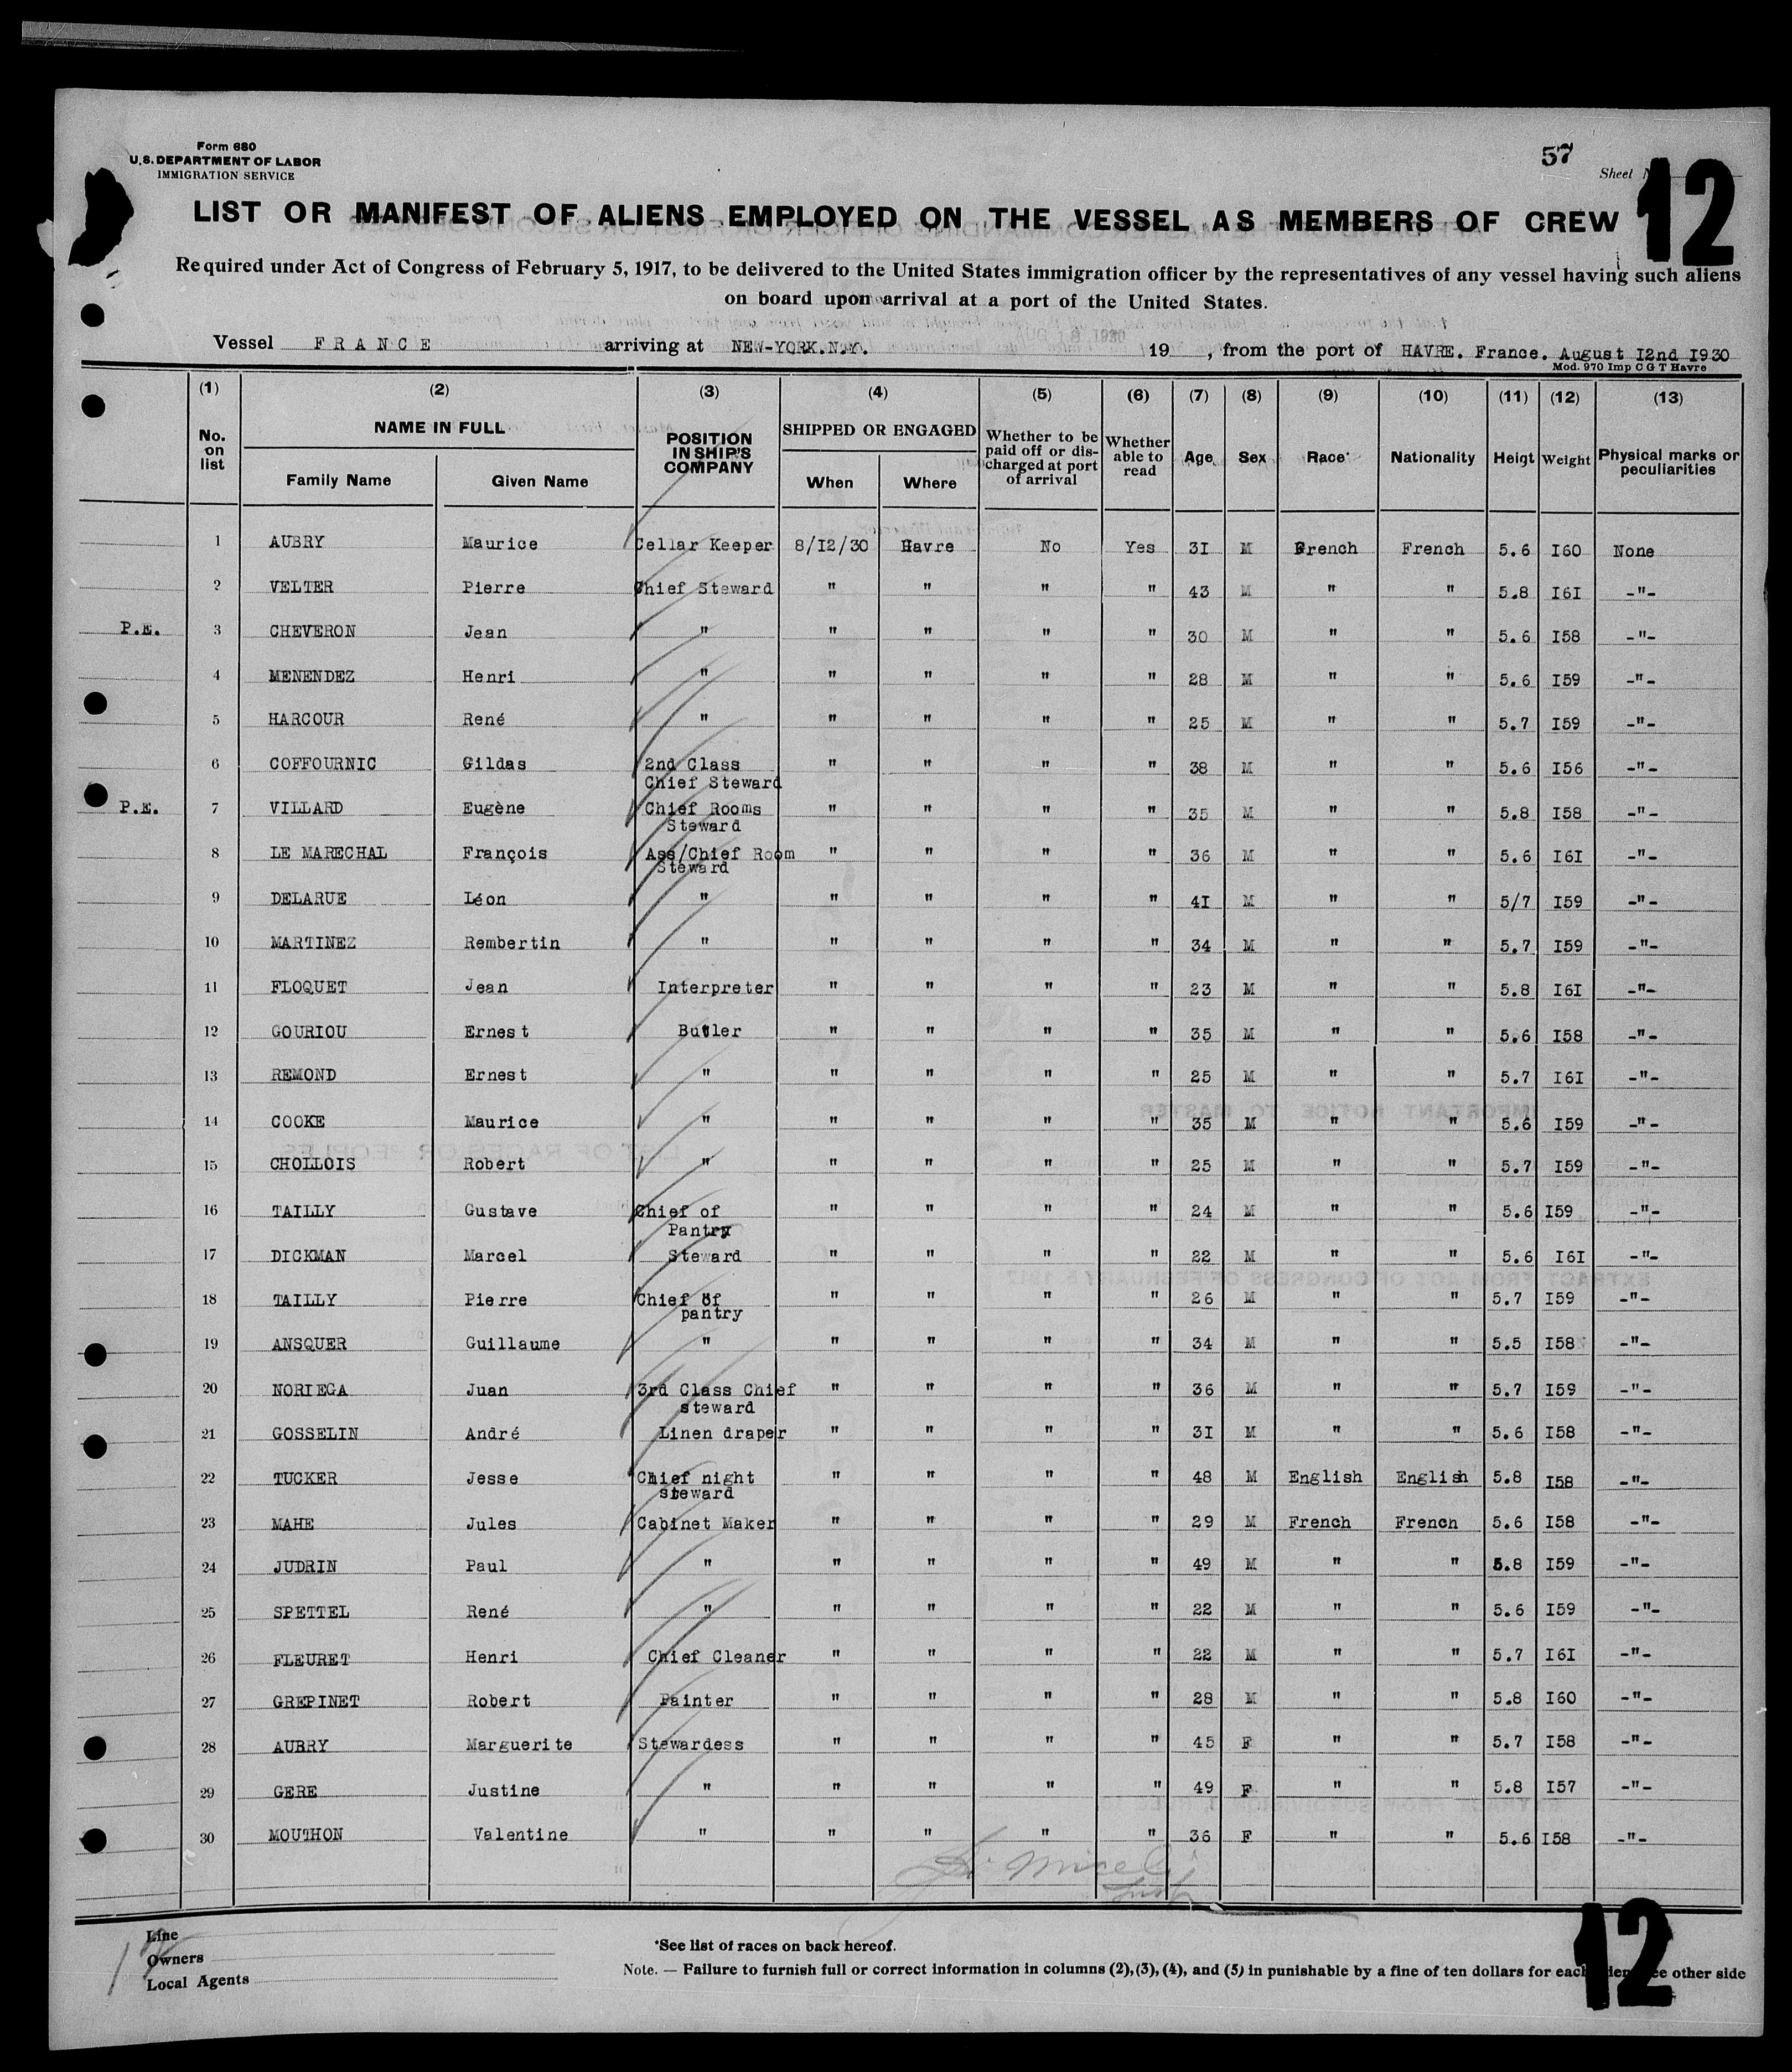 Form 680
U.S. DEPARTMENT OF LABOR
IMMIGRATION SERVICE
57
Sheet
12
LIST OR MANIFEST OF ALIENS EMPLOYED ON THE VESSEL AS MEMBERS OF CREW
Required under Act of Congress of February 5, 1917, to be delivered to the United States immigration officer by the representatives of any vessel having such aliens
on board upon arrival at a port of the United States.
Vessel FRANCE arriving at NEW-YORK.N.Y. 19 , from the port of HAVRE. France. August I2nd I930
Mod. 970 Imp C G T Havre
(1) (2) (3) (4) (5) (6) (7) (8) (9) (10) (11) (12) (13)
No. on list NAME IN FULL Family Name Given Name POSITION IN SHIP'S COMPANY SHIPPED OR ENGAGED When Where Whether to be paid off or discharged at port of arrival Whether able to read Age Sex Race* Nationality Heigt Weight Physical marks or peculiarities
1 AUBRY Maurice Cellar Keeper 8/I2/30 Havre No Yes 3I M French French 5.6 I60 None
2 VELTER Pierre Chief Steward " " " " 43 M " " 5.8 I6I -"-
P.E. 3 CHEVERON Jean " " " " " 30 M " " 5.6 I58 -"-
4 MENENDEZ Henri " " " " " 28 M " " 5.6 I59 -"-
5 HARCOUR René " " " " " 25 M " " 5.7 I59 -"-
6 COFFOURNIC Gildas 2nd Class Chief Steward " " " " 38 M " " 5.6 I56 -"-
P.E. 7 VILLARD Eugène Chief Rooms Steward " " " " 35 M " " 5.8 I58 -"-
8 LE MARECHAL François Ass/Chief Room Steward " " " " 36 M " " 5.6 I6I -"-
9 DELARUE Léon " " " " " 4I M " " 5/7 I59 -"-
10 MARTINEZ Rembertin " " " " " 34 M " " 5.7 I59 -"-
11 FLOQUET Jean Interpreter " " " " 23 M " " 5.8 I6I -"-
12 GOURIOU Ernest Butler " " " " 35 M " " 5.6 I58 -"-
13 REMOND Ernest " " " " " 25 M " " 5.7 I6I -"-
14 COOKE Maurice " " " " " 35 M " " 5.6 I59 -"-
15 CHOLLOIS Robert " " " " " 25 M " " 5.7 I59 -"-
16 TAILLY Gustave Chief of Pantry " " " " 24 M " " 5.6 I59 -"-
17 DICKMAN Marcel Steward " " " " 22 M " " 5.6 I6I -"-
18 TAILLY Pierre Chief of pantry " " " " 26 M " " 5.7 I59 -"-
19 ANSQUER Guillaume " " " " " 34 M " " 5.5 I58 -"-
20 NORIEGA Juan 3rd Class Chief steward " " " " 36 M " " 5.7 I59 -"-
21 GOSSELIN André Linen draper " " " " 3I M " " 5.6 I58 -"-
22 TUCKER Jesse Chief night steward " " " " 48 M English English 5.8 I58 -"-
23 MAHE Jules Cabinet Maker " " " " 29 M French French 5.6 I58 -"-
24 JUDRIN Paul " " " " " 49 M " " 5.8 I59 -"-
25 SPETTEL René " " " " " 22 M " " 5.6 I59 -"-
26 FLEURET Henri Chief Cleaner " " " " 22 M " " 5.7 I6I -"-
27 GREPINET Robert Painter " " " " 28 M " " 5.8 I60 -"-
28 AUBRY Marguerite Stewardess " " " " 45 F " " 5.7 I58 -"-
29 GERE Justine " " " " " 49 F " " 5.8 I57 -"-
30 MOUTHON Valentine " " " " " 36 F " " 5.6 I58 -"-
Line
Owners
Local Agents
*See list of races on back hereof.
Note. — Failure to furnish full or correct information in columns (2),(3), (4), and (5) in punishable by a fine of ten dollars for each other side
12